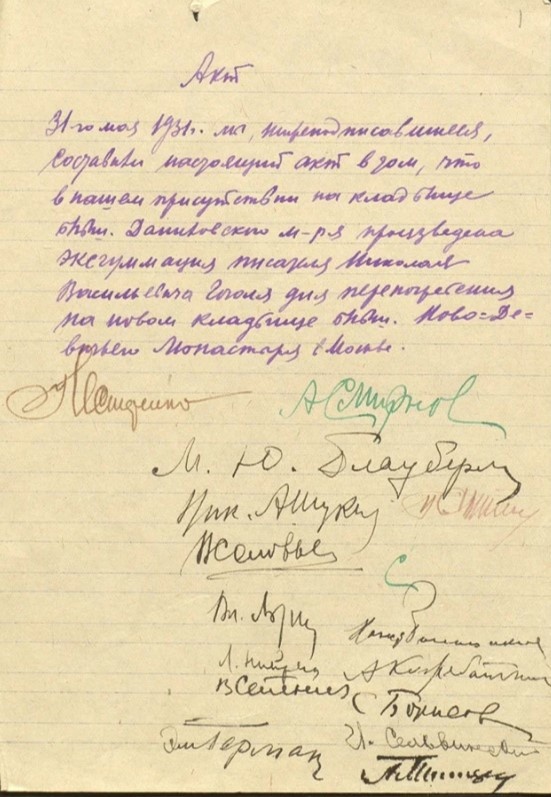 1
Акт
31го мая 1931г. мы, нижеподписавшиеся,
составили настоящий акт в том, что
в нашем присутствии на кладбище
бывш. Даниловского м-ря произведена
эксгуммация писателя Николая
Васильевича Гоголя для перепогребения
на новом кладбище бывш. Ново-Де-
вичьего Монастыря в Москве.
А Смирнов
М. Ю. Блауберг
Ник. Ашукин
В Соловьев
Вл. Лидин
С Борисов
И. Сельвинский